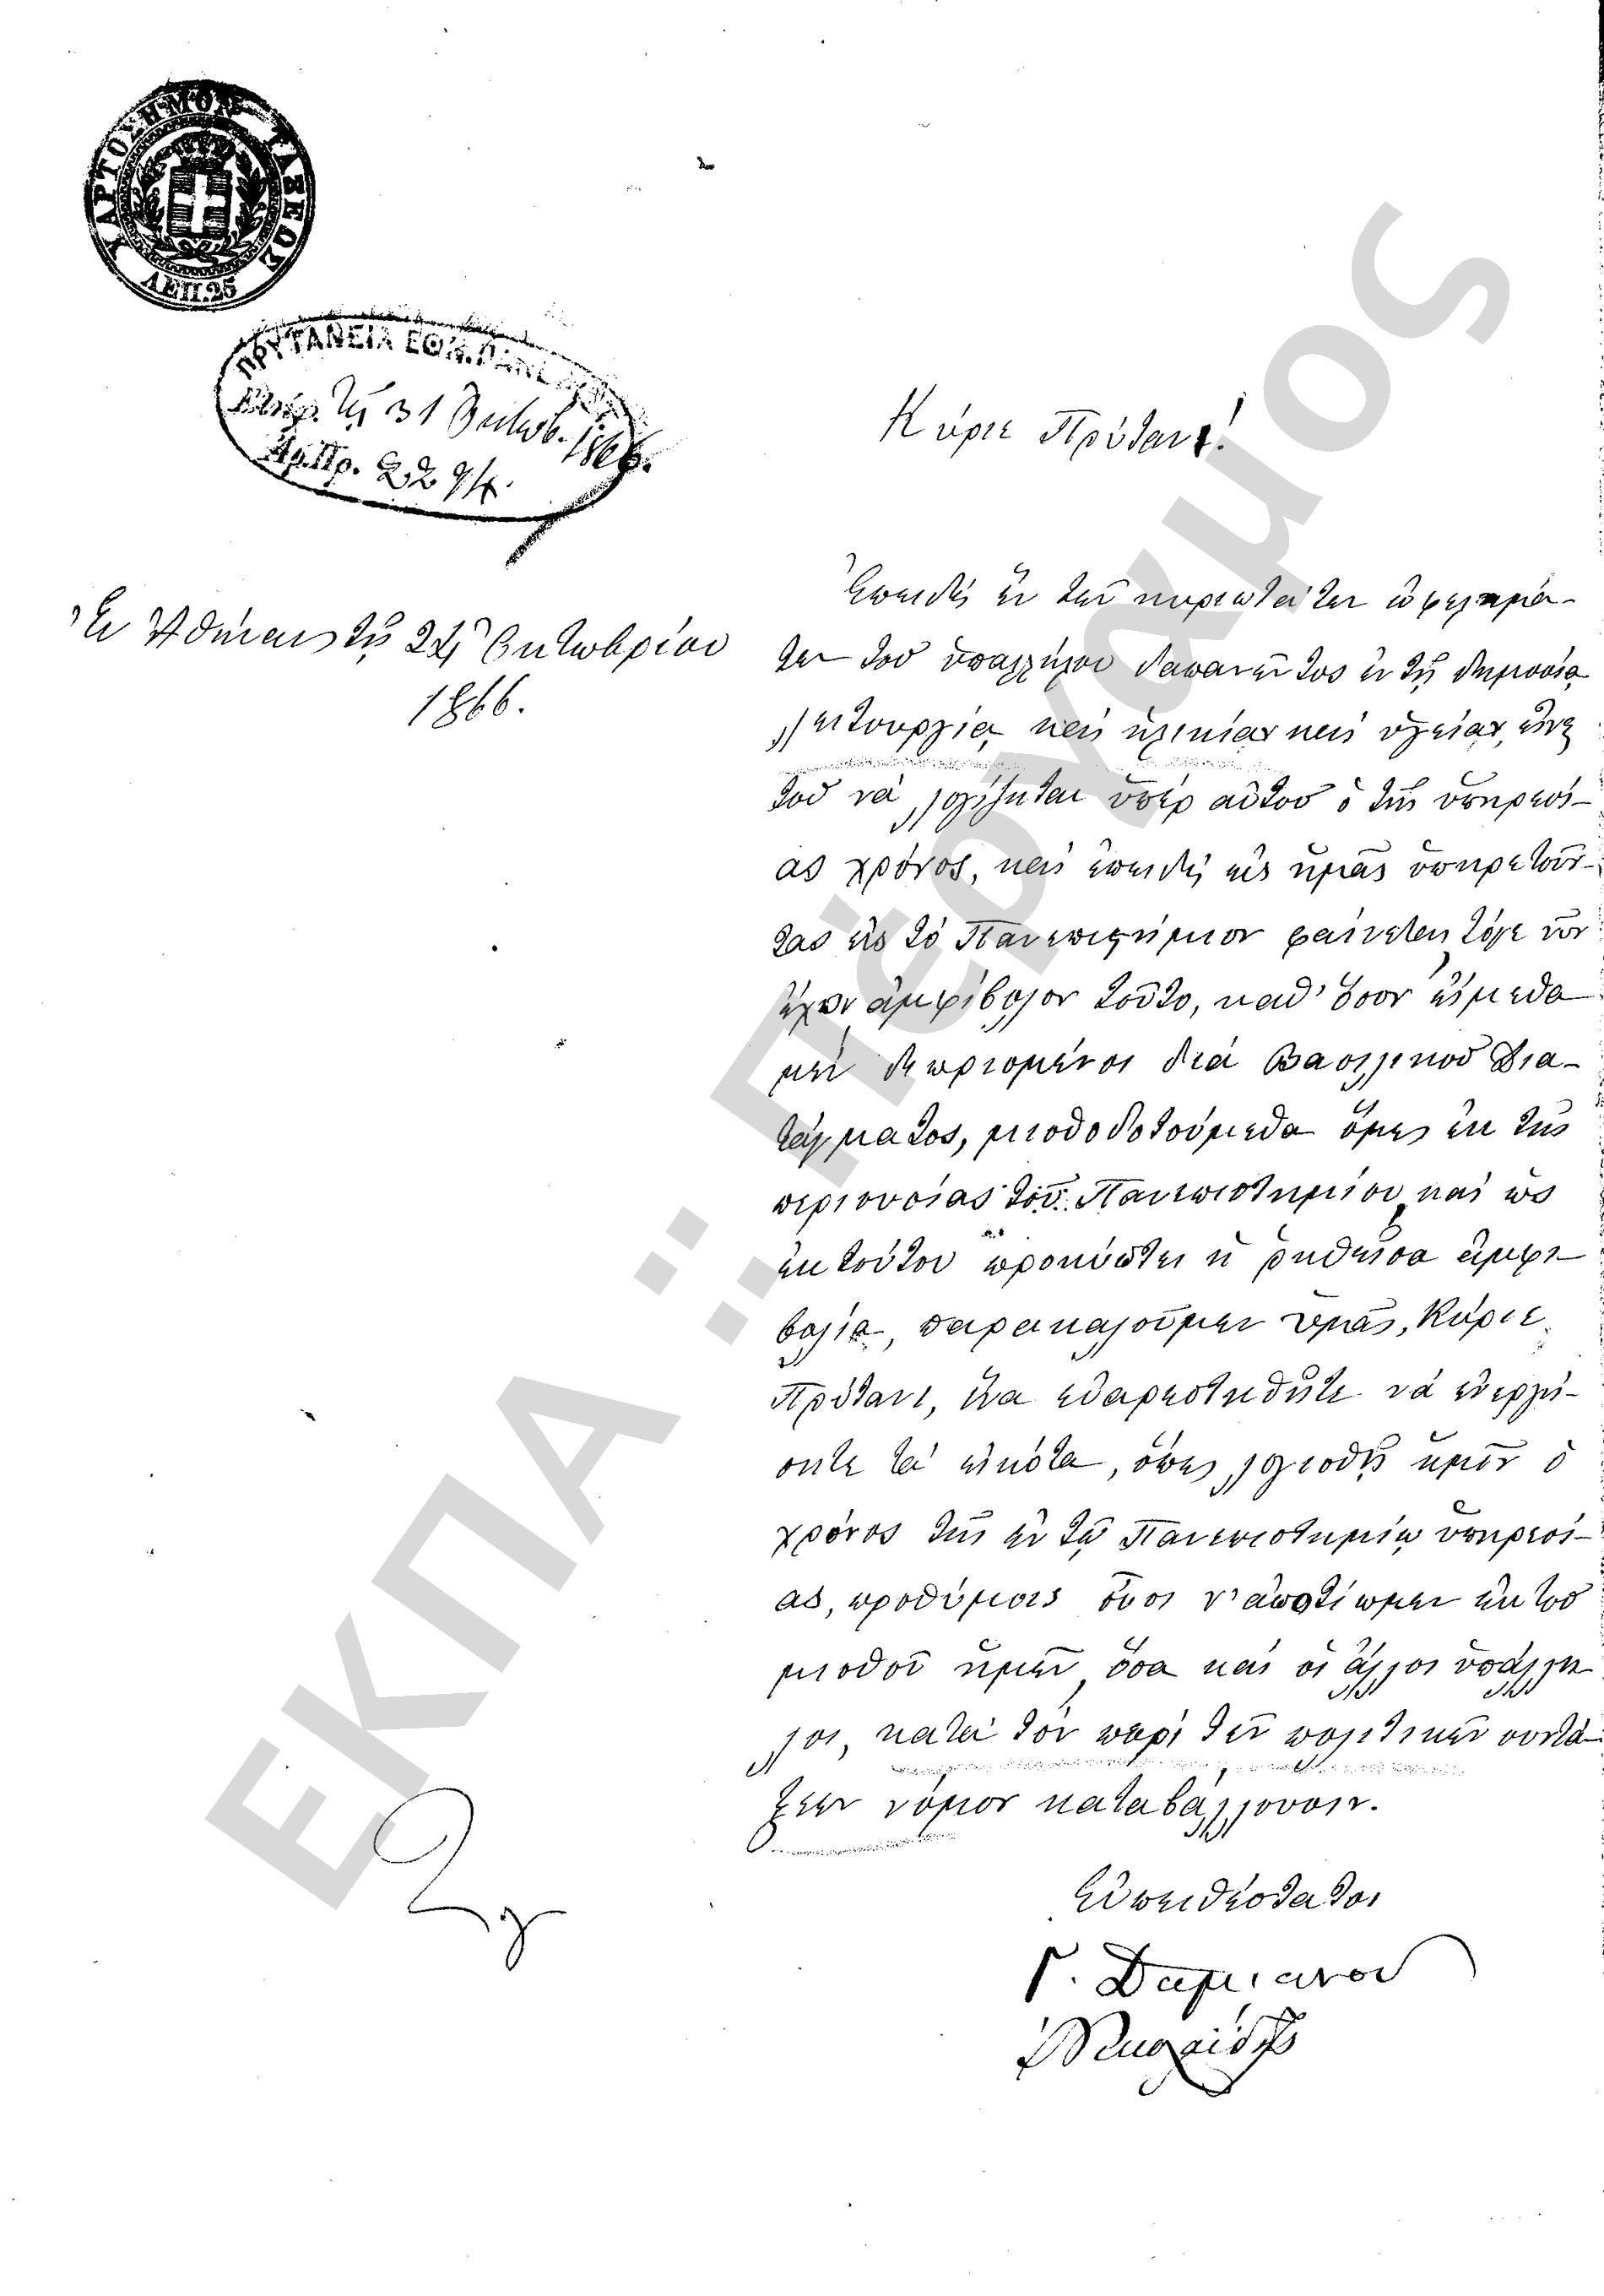 ΧΑΡΤΟΣΗΜΟΝ ΤΑΞΕΩΣ
ΛΕΠ.25
ΠΡΥΤΑΝΕΙΑ ΕΘΝ. ΠΑΝΕΠ
τῇ 31 Ὀκτωβ. 1866.
Ἀρ. Πρ. 2294.
Κύριε Πρύτανι!
Ἐν Ἀθήναις τῇ 24 Ὀκτωβρίου
1866.
Ἐπειδὴ ἓν τῶν κυριωτάτων ὠφελημά-
των τοῦ ὑπαλλήλου δαπανῶντος ἐν τῇ δημοσίᾳ
λειτουργίᾳ καὶ ἡλικίαν καὶ ὑγείαν, εἶνε
τοῦ νὰ λογίζηται ὑπὲρ αὐτοῦ ὁ τῆς ὑπηρεσί-
ας χρόνος, καὶ ἐπειδὴ εἰς ἡμᾶς ὑπηρετοῦν-
τας εἰς τὸ Πανεπιστήμιον φαίνεται τόγε νῦν
ἔχον ἀμφίβολον τοῦτο, καθ' ὅσον εἴμεθα
μὲν διωρισμένοι διὰ Βασιλικοῦ Δια-
τάγματος, μισθοδοτούμεθα ὅμως ἐκ τῆς
περιουσίας τοῦ Πανεπιστημίου, καὶ ὡς
ἐκ τούτου προκύπτει ἡ ῥηθεῖσα ἀμφι-
βολία, παρακαλοῦμεν ὑμᾶς, Κύριε
Πρύτανι, ἵνα εὐαρεστηθῆτε νὰ ἐνεργή-
σητε τὰ εἰκότα, ὅπως λογισθῇ ἡμῖν ὁ
χρόνος τῆς ἐν τῷ Πανεπιστημίῳ ὑπηρεσί-
ας, προθύμοις οὖσι ν' ἀποτίωμεν ἐκ τοῦ
μισθοῦ ἡμῶν, ὅσα καὶ οἱ ἄλλοι ὑπάλλη-
λοι, κατὰ τὸν περὶ τῶν πολιτικῶν συντά-
ξεων νόμον καταβάλλουσιν.
Εὐπειθέστατοι
Γ. Δαμιανου
ΕΚΠΑ¨¨Πέργαμος